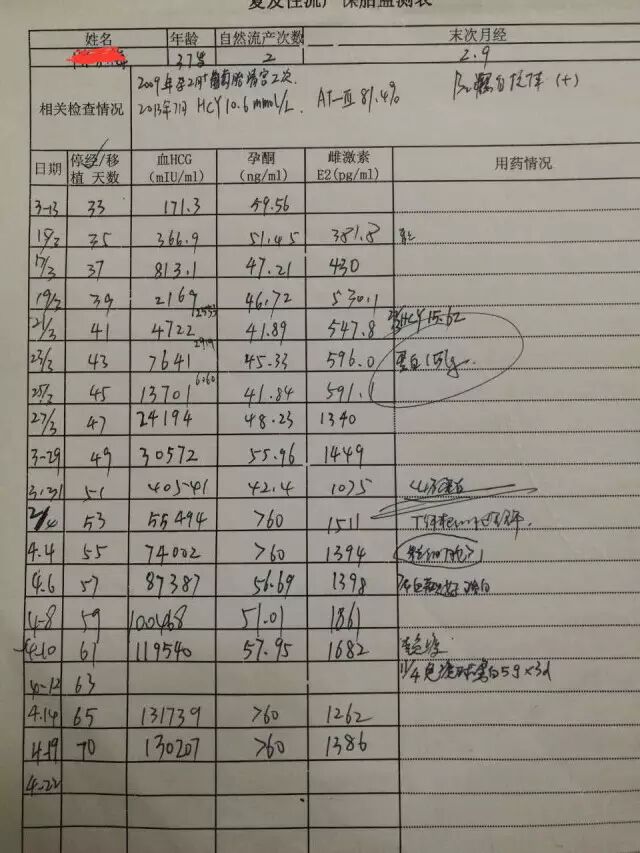 复发性流产保胎监测表
姓名 年龄 自然流产次数 末次月经
37岁 2 2.9
相关检查情况 2009年孕2月+葡萄胎清宫2次
2013年7月 HCY 10.6 mmol/L AT-Ⅲ 81.4% 抗体 (+)
日期 停经/移植 天数 血HCG (mIU/ml) 孕酮 (ng/ml) 雌激素 E2(pg/ml) 用药情况
3-13 33 171.3 59.56
15/3 35 366.9 51.45 381.8
17/3 37 813.1 47.21 430
19/3 39 2169 46.72 530.1
21/3 41 4722 41.89 547.8 HCY 15.62
23/3 43 7641 45.33 596.0 蛋白
25/3 45 13701 6060 41.84 591.1
27/3 47 24194 48.23 1340
3-29 49 30572 55.96 1449
3.31 51 40541 42.4 1075
2/4 53 55494 >60 1511
4.4 55 74002 >60 1394
4.6 57 87387 56.69 1398
4-8 59 51.01 1861
4-10 61 119540 57.95 1682
4-12 63 11/4 蛋白5g×3d
4.14 65 131739 >60 1262
4.19 70 130207 >60 1386
4-22